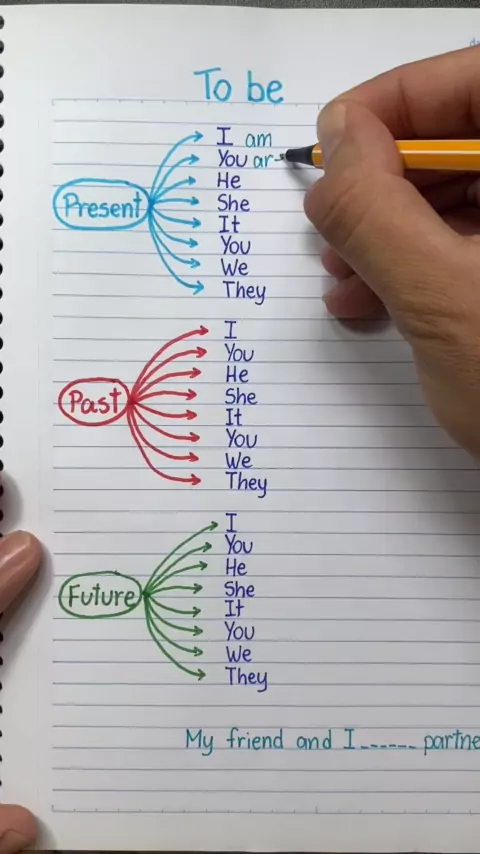 To be
Present
I am
You ar
He
She
It
You
We
They
Past
I
You
He
She
It
You
We
They
Future
I
You
He
She
It
You
We
They
My friend and I ------ partne